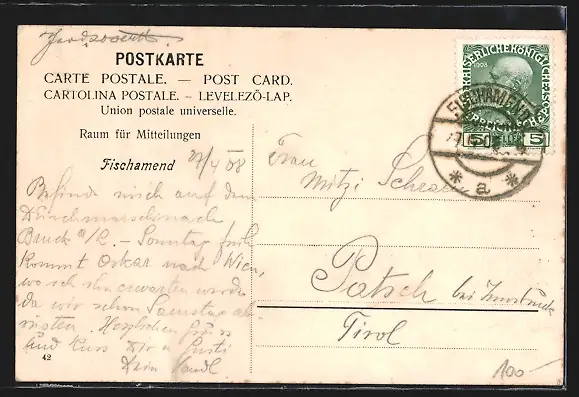 POSTKARTE
CARTE POSTALE. — POST CARD.
CARTOLINA POSTALE. – LEVELEZŐ-LAP.
Union postale universelle.
Raum für Mitteilungen
Fischamend 27/4 08
Befinde mich auf dem
Bruck a/L. – Sonntag früh
kommt Oskar nach Wien,
wo ich ihn erwarten werde
da wir schon Samstag
Herzlichen Gruss
und Kuss Dir u Gusti
Dein
42
Frau
Mitzi
Patsch bei Innsbruck
Tirol
100-
KAISERLICHE KÖNIGLICHE
1908
5 5
FISCHAMEND
* a *